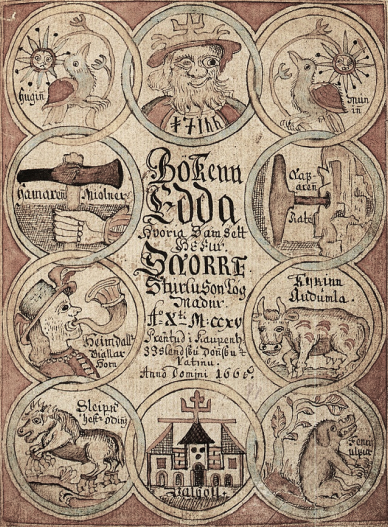 Hugiñ
Mun
in
Hamareñ Miolner
Bokenn
Edda
Hvoria Samsett
Hefur
SNORRE
Sturlu Son Log
Madur
Aº Xti M:ccxv
Prentud i Kaupenh
Islendsku Donsku &
Latinu.
Anno Domini 1665
Heimdall
Giallar
Horn
Kyrinn
Audumla.
Sleipn
hest odins
Valholl.